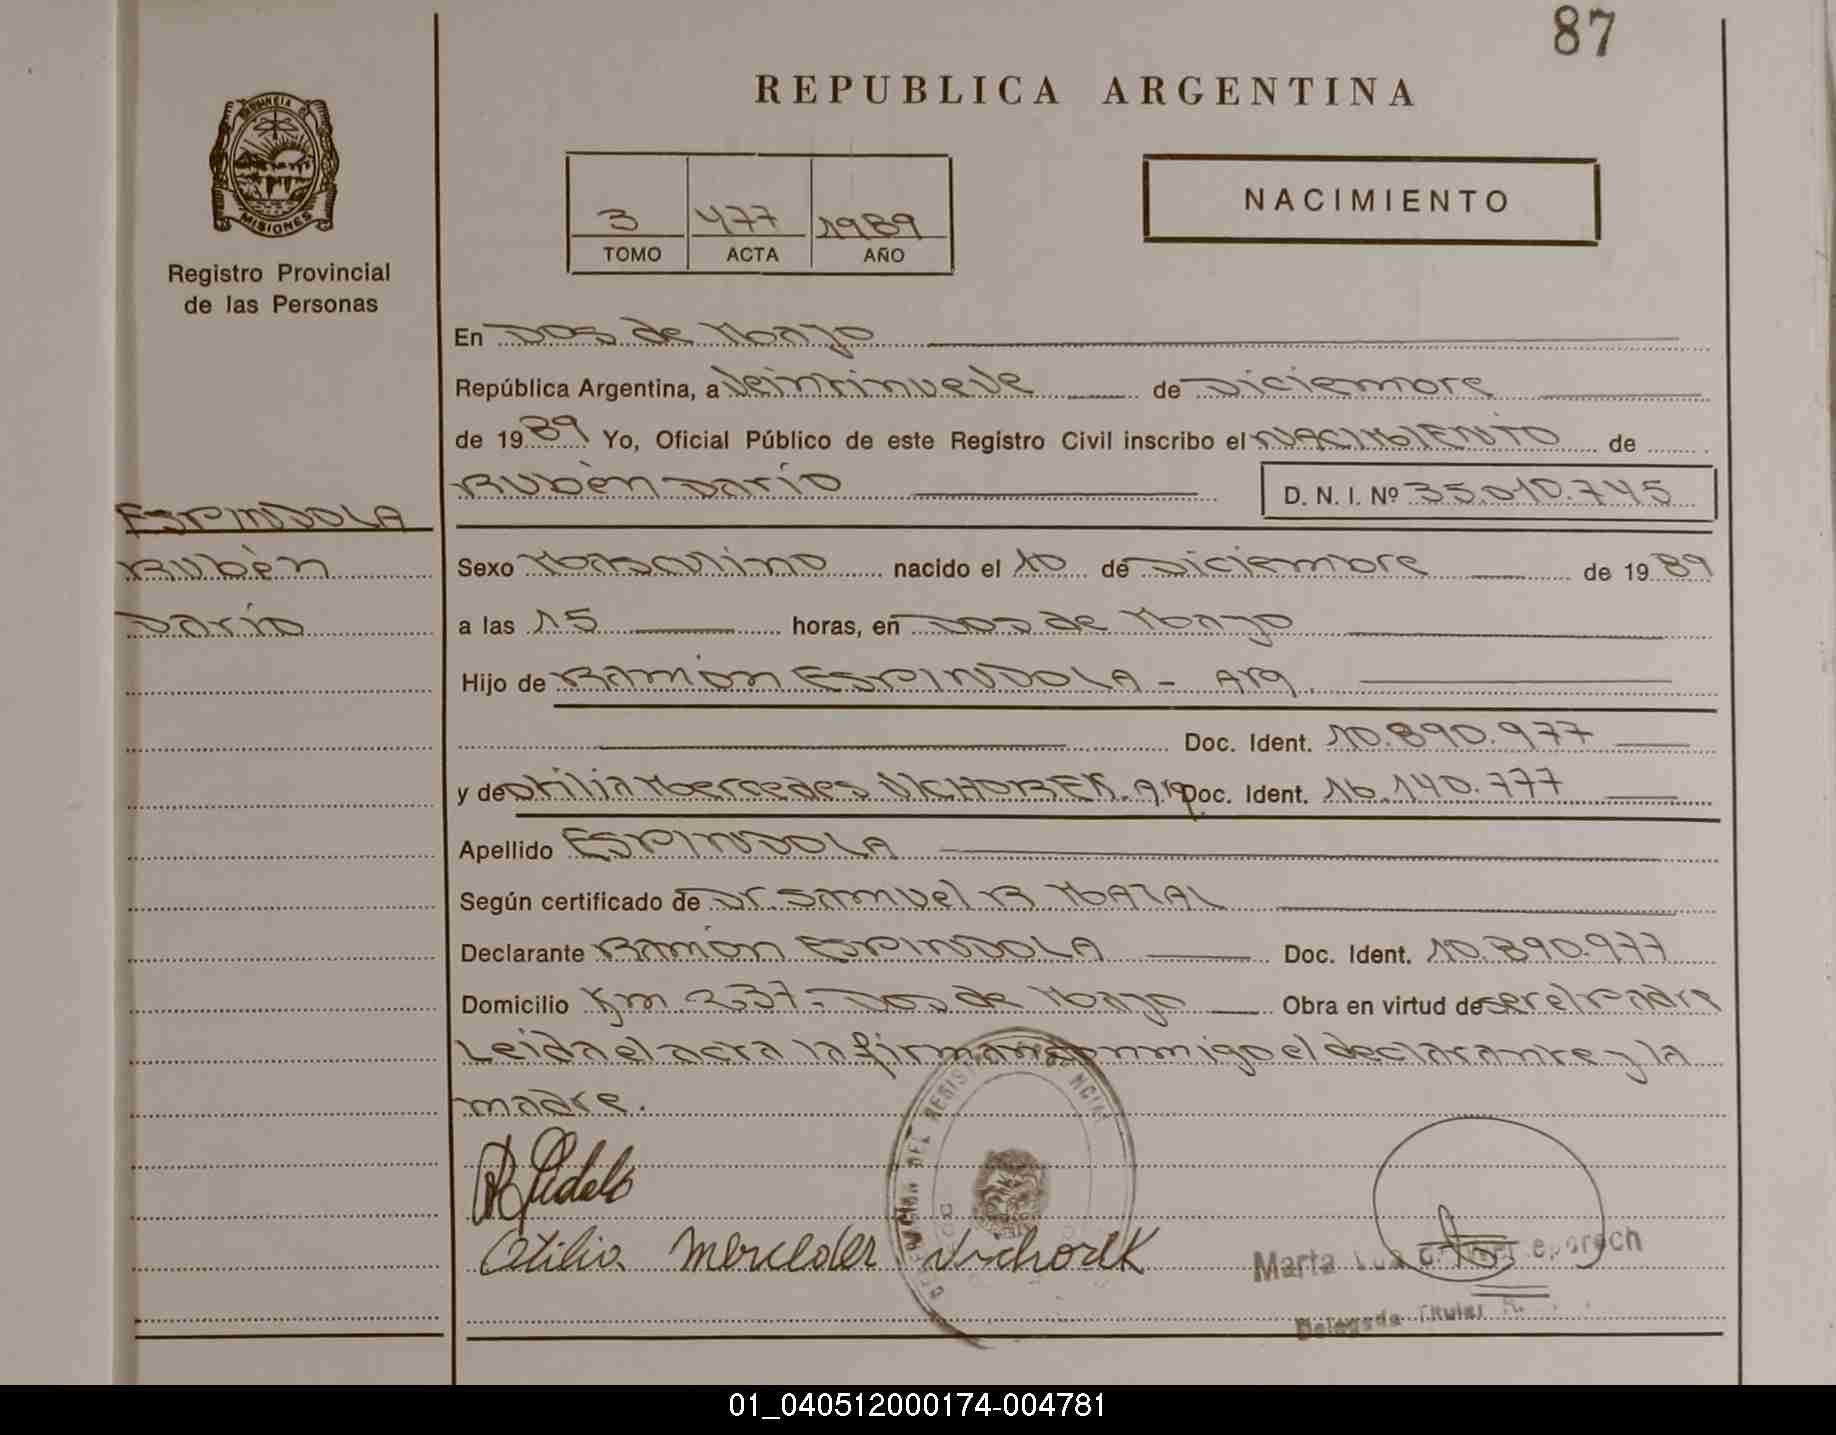 87
REPUBLICA ARGENTINA
PROVINCIA D
MISIONES
Registro Provincial
de las Personas
3 477 1989
TOMO ACTA AÑO
NACIMIENTO
En Dos de Mayo
República Argentina, a Veintinueve de Diciembre
de 1989 Yo, Oficial Público de este Registro Civil inscribo el NACIMIENTO de
Rubèn Darío D. N. I. Nº 35.010.745
ESPINDOLA
Rubèn
Darío
Sexo Masculino nacido el 10 de Diciembre de 1989
a las 15 horas, en Dos de Mayo
Hijo de RAMÓN ESPINDOLA - Arg.
Doc. Ident. 10.890.977
y de Otilia Mercedes VICHOREK. Arg. Doc. Ident. 16.140.777
Apellido ESPINDOLA
Según certificado de Dr. Samuel R MAZAL
Declarante RAMÓN ESPINDOLA Doc. Ident. 10.890.977
Domicilio Km 237 - Dos de Mayo Obra en virtud de ser el padre
Leida el acta la firman conmigo el declarante y la
madre.
DEL REGIS
Otilia Mercedes Vichorek
Marta
Delegada Titular
01_040512000174-004781